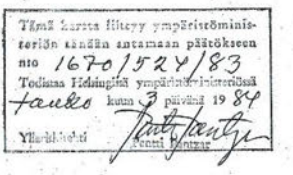 Tämä kartta liittyy ympäristöminis-
teriön tänään antamaan päätökseen
n:o 1670/524/83
Todistaa Helsingissä ympäristöministeriössä
kuun 3 päivänä 1984
Yliarkkitehti
Pentti Pantzar